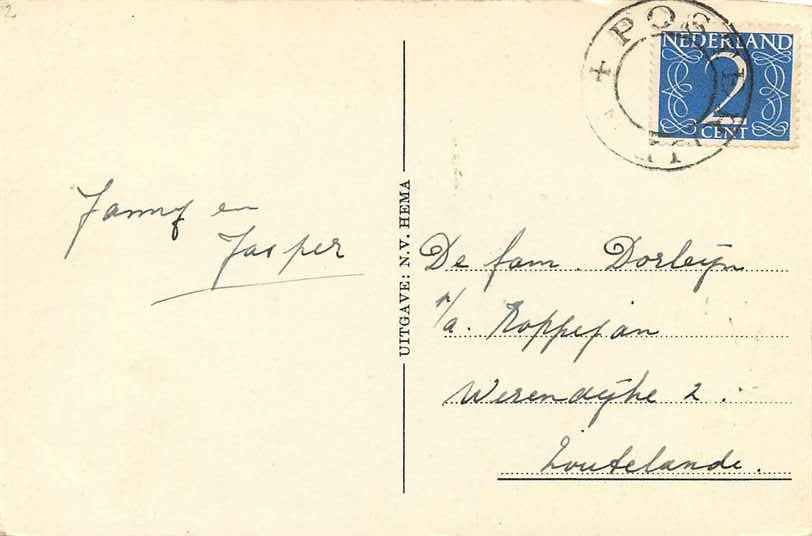 2
POSTE
NEDERLAND
2
CENT
Janny en
Jasper
UITGAVE: N.V. HEMA
De fam. Dorleijn
p/a. Koppejan
Werendijke 2.
Zoutelande.